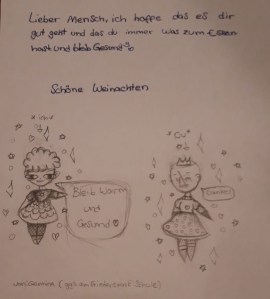 Lieber Mensch, ich hoffe das es dir
gut geht und das du immer was zum Essen
hast und bleib Gesund
Schöne Weinachten
*ich*
*Du*
Bleib Warm
und
Gesund
Danke!
von